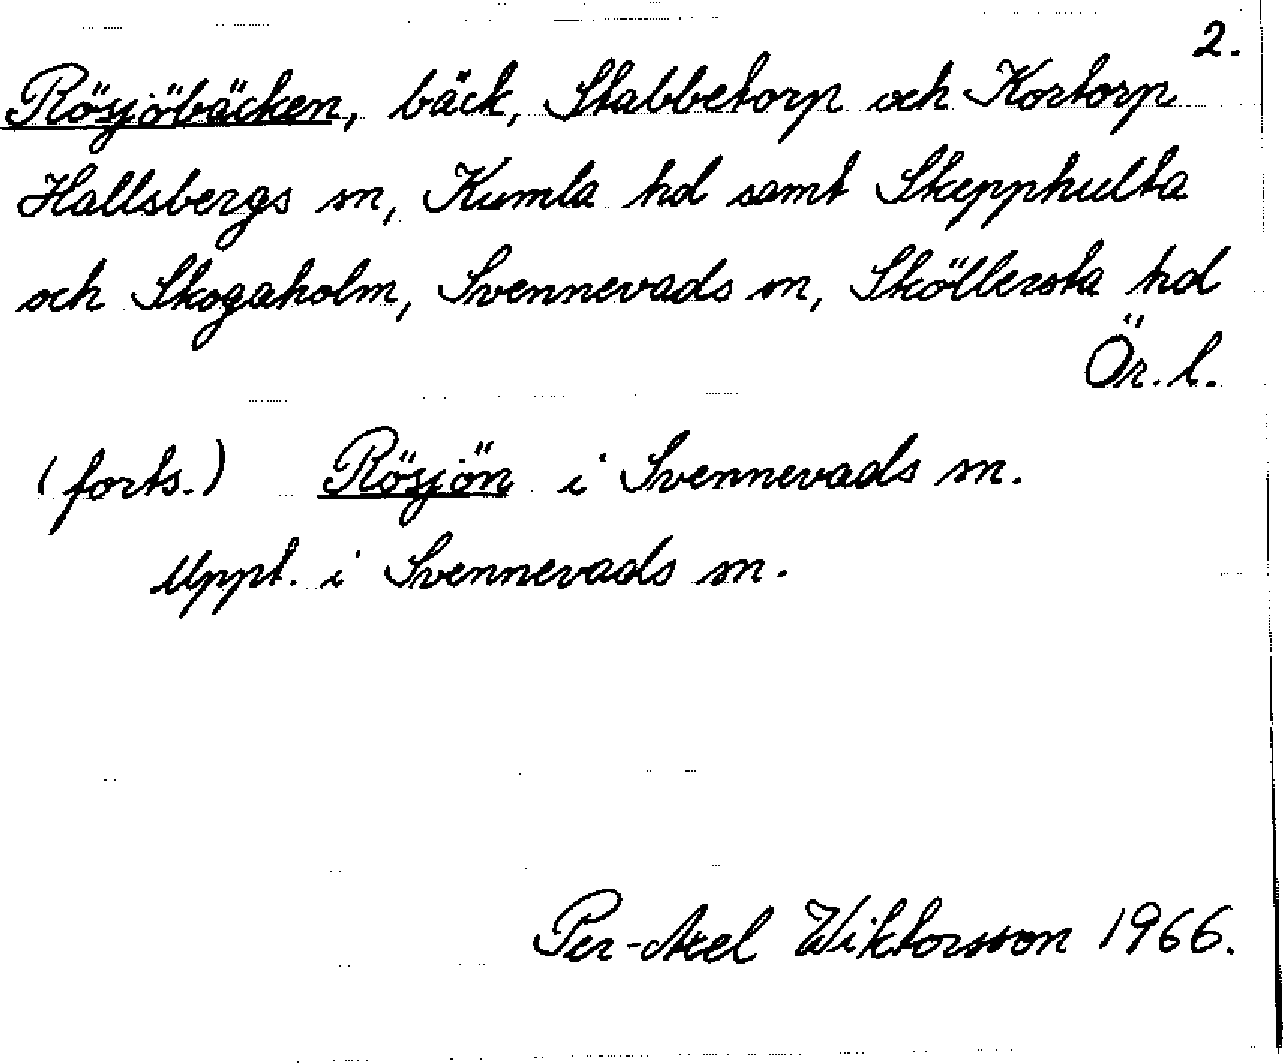 2.
Rösjöbäcken, bäck, Stabbetorp och Kortorp
Hallsbergs sn, Kumla hd samt Skepphulta
och Skogaholm, Svennevads sn, Sköllersta hd
Ör. l.
(forts.) Rösjön i Svennevads sn.
Uppt. i Svennevads sn.
Per-Axel Wiktorsson 1966.